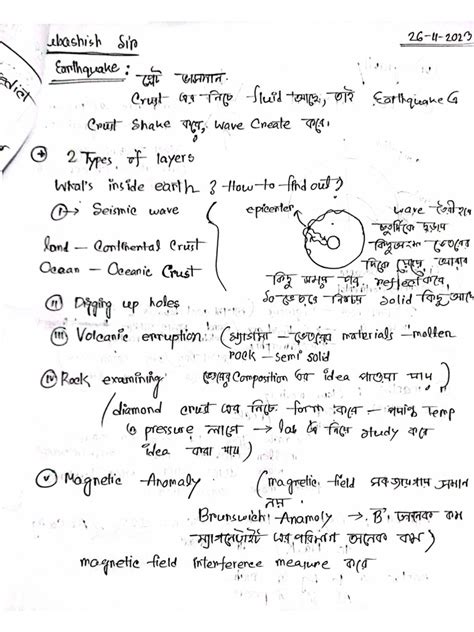 ebashish Sir
26-11-2023
Earthquake: প্লেট ভাসমান.
Crust এর নিচে fluid আছে, তাই Earthquake এ
Crust Shake করে, wave Create করে.
2 Types of layers
What's inside earth? How to find out?
(i) Seismic wave
land - Continental Crust
Ocean - Oceanic Crust
epicenter
wave তৈরী হবে
চতুর্দিকে ছড়াবে
কিছু ভেতরের
দিকে আবার
কিছু সময় পর reflect করে,
So ভেতরে নিশ্চয় solid কিছু আছে
(ii) Digging up holes
(iii) Volcanic erruption (ম্যাগমা - ভেতরের materials - molten
rock - semi solid
(iv) Rock examining ভেতরের Composition এর idea পাওয়া যায়)
(diamond crust এর নিচে form করে - পর্যাপ্ত Temp
ও pressure লাগে → lab এ নিয়ে study করে
idea করা যায়)
(v) Magnetic Anomaly (magnetic field সব জায়গায় সমান
নয়.
Brunswich Anamoly → B, অনেক কম
ম্যাগনেটাইট এর পরিমাণ অনেক কম)
magnetic field interference measure করে